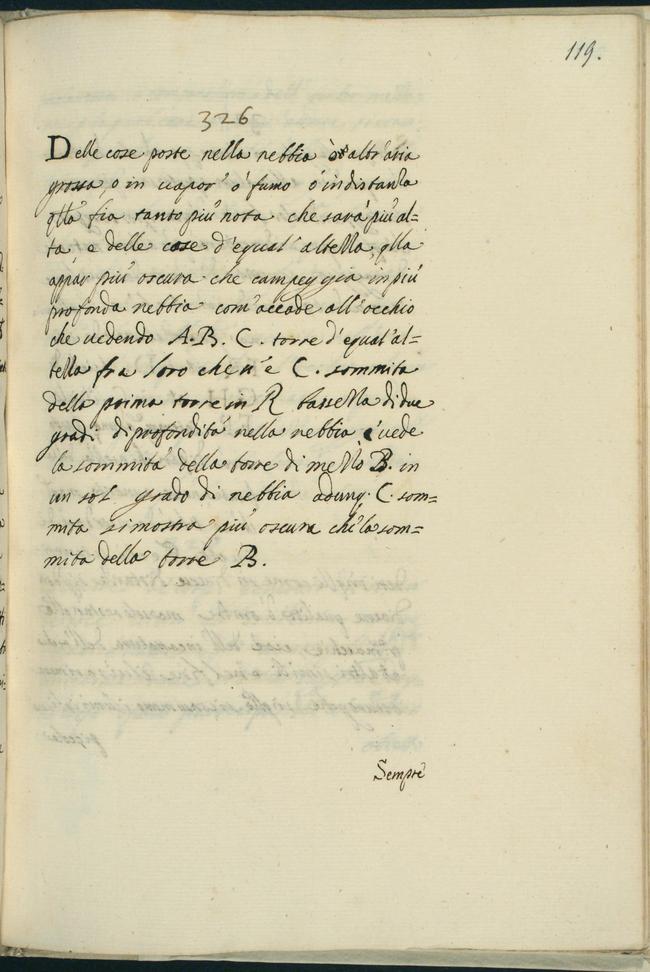 119.
326
Delle cose poste nella nebbia ò altr'aria
grossa, o in uapor' ò fumo ò in distanza
qlla fia tanto più nota che sarà più al=
ta, e delle cose d'equal' altezza, qlla
appar più oscura che campeggia in più
profonda nebbia com'accade all'occhio
che uedendo A.B.C. torre d'equal'al=
tezza fra loro che n'è C. sommita
della prima torre in R bassezza di due
gradi di profondità nella nebbia e uede
la sommità della torre di mezzo B. in
un sol grado di nebbia adunq. C. som=
mita si mostra più oscura che la som=
mita della torre B.
Sempre